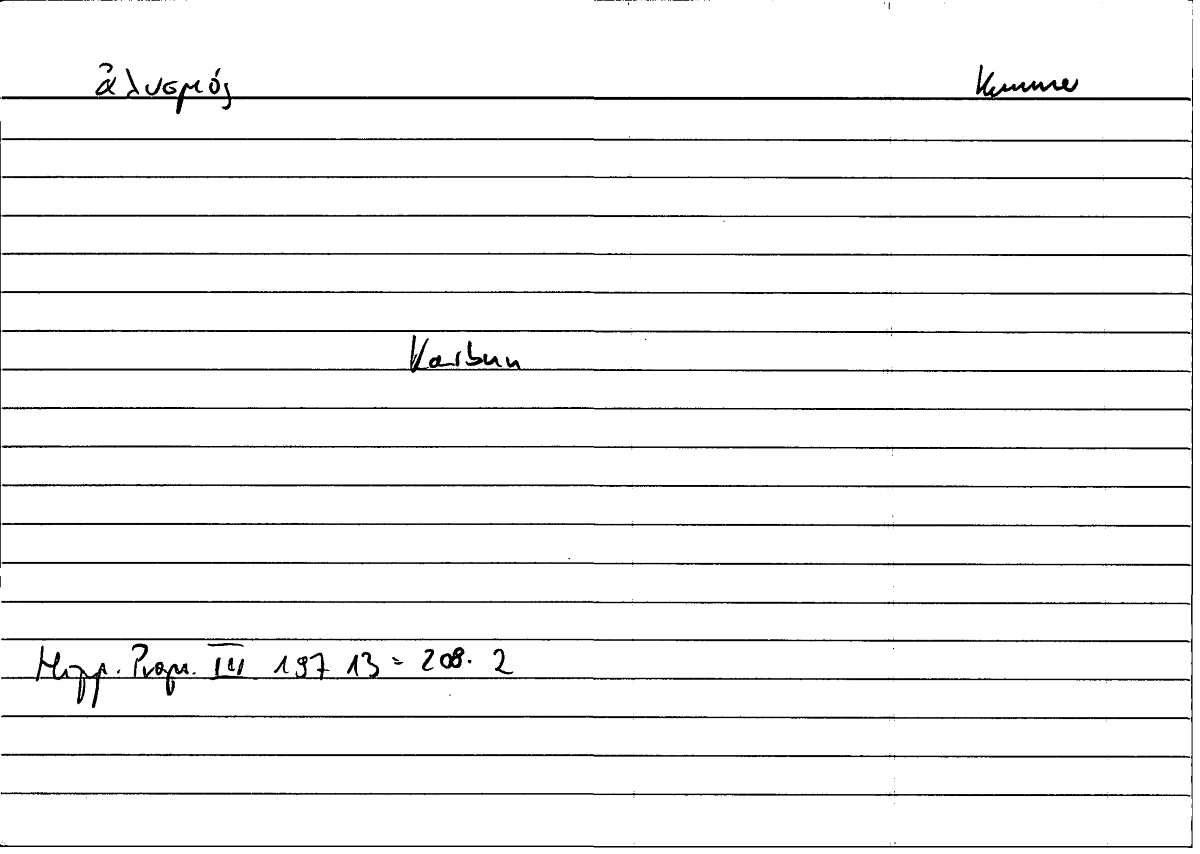 ἀλυσμός Kummer
Karbun
Hipp. Progn. III 197 13 = 208. 2